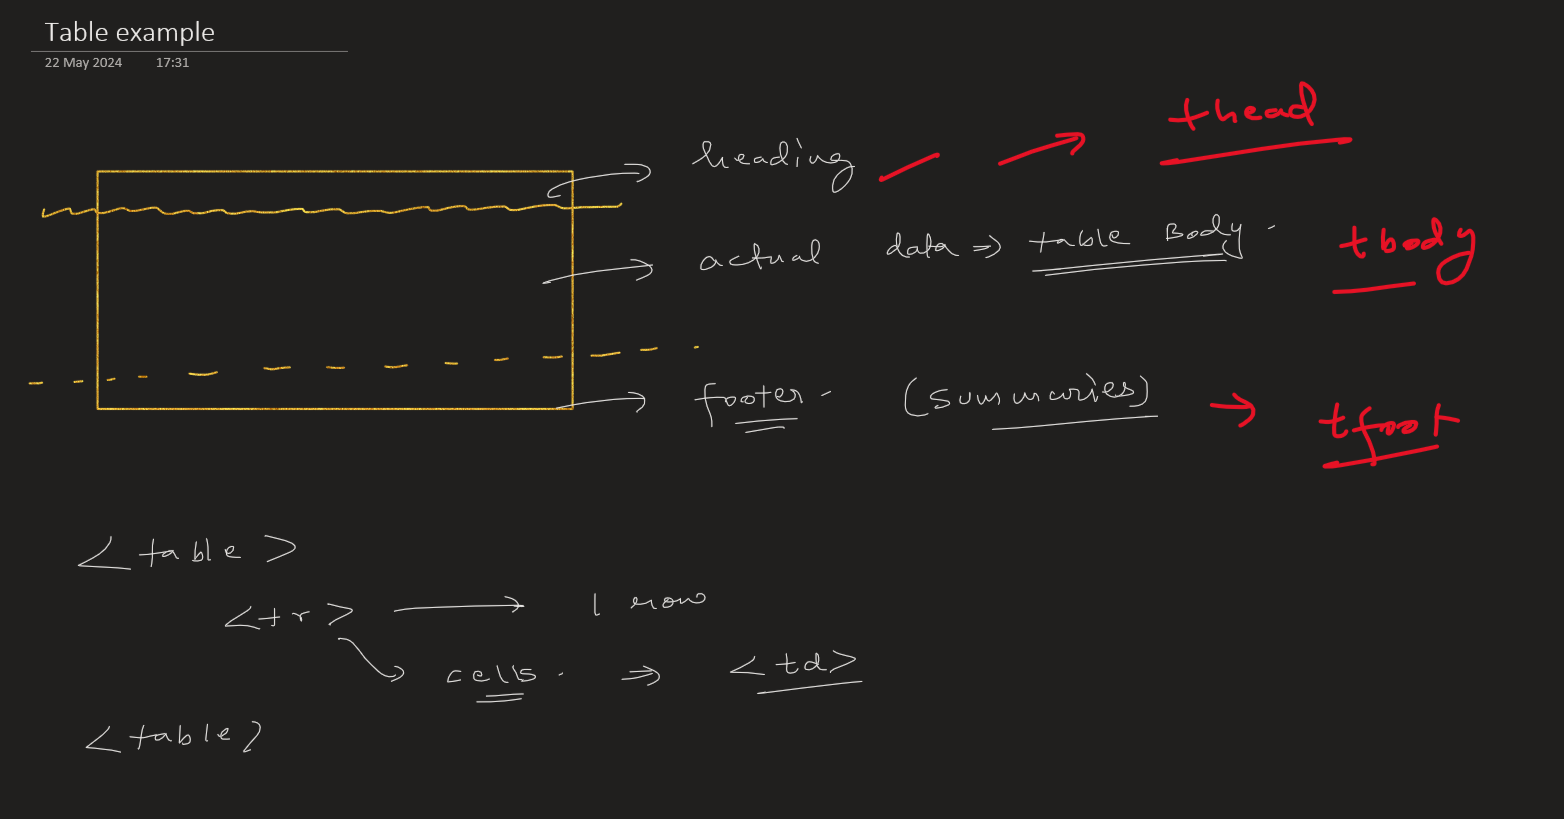 Table example
22 May 2024 17:31
heading → thead
actual data ⇒ table Body. tbody
footer - (summaries) → tfoot
<table>
<tr> → 1 row
cells. ⇒ <td>
<table>